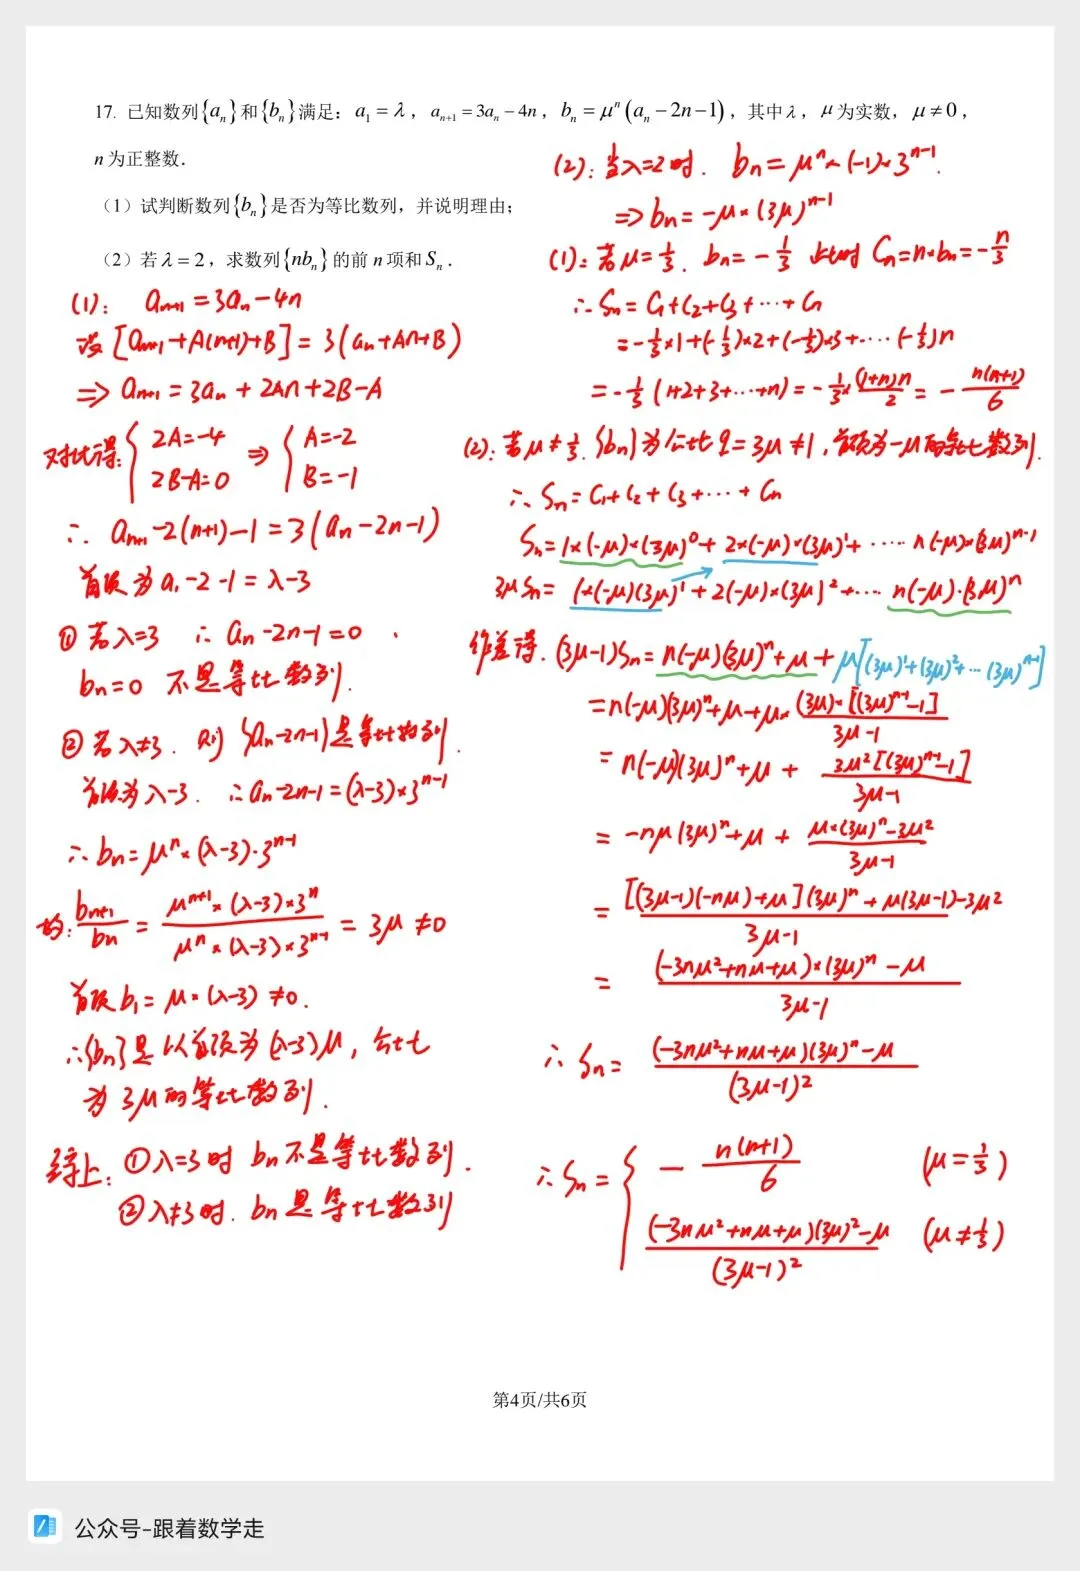 17. 已知数列{aₙ}和{bₙ}满足：a₁ = λ，aₙ₊₁ = 3aₙ − 4n，bₙ = μⁿ(aₙ − 2n − 1)，其中λ，μ为实数，μ ≠ 0，
n为正整数．
（1）试判断数列{bₙ}是否为等比数列，并说明理由；
（2）若λ = 2，求数列{nbₙ}的前n项和Sₙ．
(1): aₙ₊₁ = 3aₙ − 4n
设[aₙ₊₁ + A(n+1) + B] = 3(aₙ + An + B)
⇒ aₙ₊₁ = 3aₙ + 2An + 2B − A
对比得: { 2A = −4 ⇒ { A = −2
2B − A = 0 B = −1
∴ aₙ₊₁ − 2(n+1) − 1 = 3(aₙ − 2n − 1)
首项为 a₁ − 2 − 1 = λ − 3
① 若λ=3 ∴ aₙ − 2n − 1 = 0 .
bₙ = 0 不是等比数列.
② 若λ≠3. 则{aₙ−2n−1}是等比数列.
首项为λ−3. ∴ aₙ − 2n − 1 = (λ−3)×3ⁿ⁻¹
∴ bₙ = μⁿ × (λ−3)·3ⁿ⁻¹
故: bₙ₊₁/bₙ = μⁿ⁺¹×(λ−3)×3ⁿ / μⁿ×(λ−3)×3ⁿ⁻¹ = 3μ ≠ 0
首项 b₁ = μ×(λ−3) ≠ 0.
∴{bₙ}是以首项为(λ−3)μ, 公比
为3μ的等比数列.
综上: ①λ=3时 bₙ不是等比数列.
②λ≠3时. bₙ是等比数列
(2): 当λ=2时. bₙ = μⁿ × (−1)×3ⁿ⁻¹.
⇒ bₙ = −μ×(3μ)ⁿ⁻¹
(1): 若μ=1/3. bₙ = −1/3 此时 Cₙ = n·bₙ = −n/3
∴ Sₙ = C₁+C₂+C₃+⋯+Cₙ
= −1/3×1+(−1/3)×2+(−1/3)×3+⋯(−1/3)n
= −1/3(1+2+3+⋯+n) = −1/3×(1+n)n/2 = − n(n+1)/6
(2): 若μ≠1/3. {bₙ}为公比q=3μ≠1, 首项为−μ的等比数列.
∴ Sₙ = C₁+C₂+C₃+⋯+Cₙ
Sₙ = 1×(−μ)×(3μ)⁰+2×(−μ)×(3μ)¹+⋯⋯n(−μ)×(3μ)ⁿ⁻¹
3μSₙ = 1×(−μ)(3μ)¹+2(−μ)×(3μ)²+⋯n(−μ)·(3μ)ⁿ
作差得. (3μ−1)Sₙ = n(−μ)(3μ)ⁿ+μ+μ[(3μ)¹+(3μ)²+⋯(3μ)ⁿ⁻¹]
= n(−μ)(3μ)ⁿ+μ+μ×(3μ)·[(3μ)ⁿ⁻¹−1]/3μ−1
= n(−μ)(3μ)ⁿ+μ+ 3μ²[(3μ)ⁿ⁻¹−1]/3μ−1
= −nμ(3μ)ⁿ+μ+ μ×(3μ)ⁿ−3μ²/3μ−1
= [(3μ−1)(−nμ)+μ](3μ)ⁿ+μ(3μ−1)−3μ²/3μ−1
= (−3nμ²+nμ+μ)×(3μ)ⁿ−μ/3μ−1
∴ Sₙ = (−3nμ²+nμ+μ)(3μ)ⁿ−μ/(3μ−1)²
∴ Sₙ = { − n(n+1)/6 (μ=1/3)
(−3nμ²+nμ+μ)(3μ)²−μ/(3μ−1)² (μ≠1/3)
第4页/共6页
公众号-跟着数学走